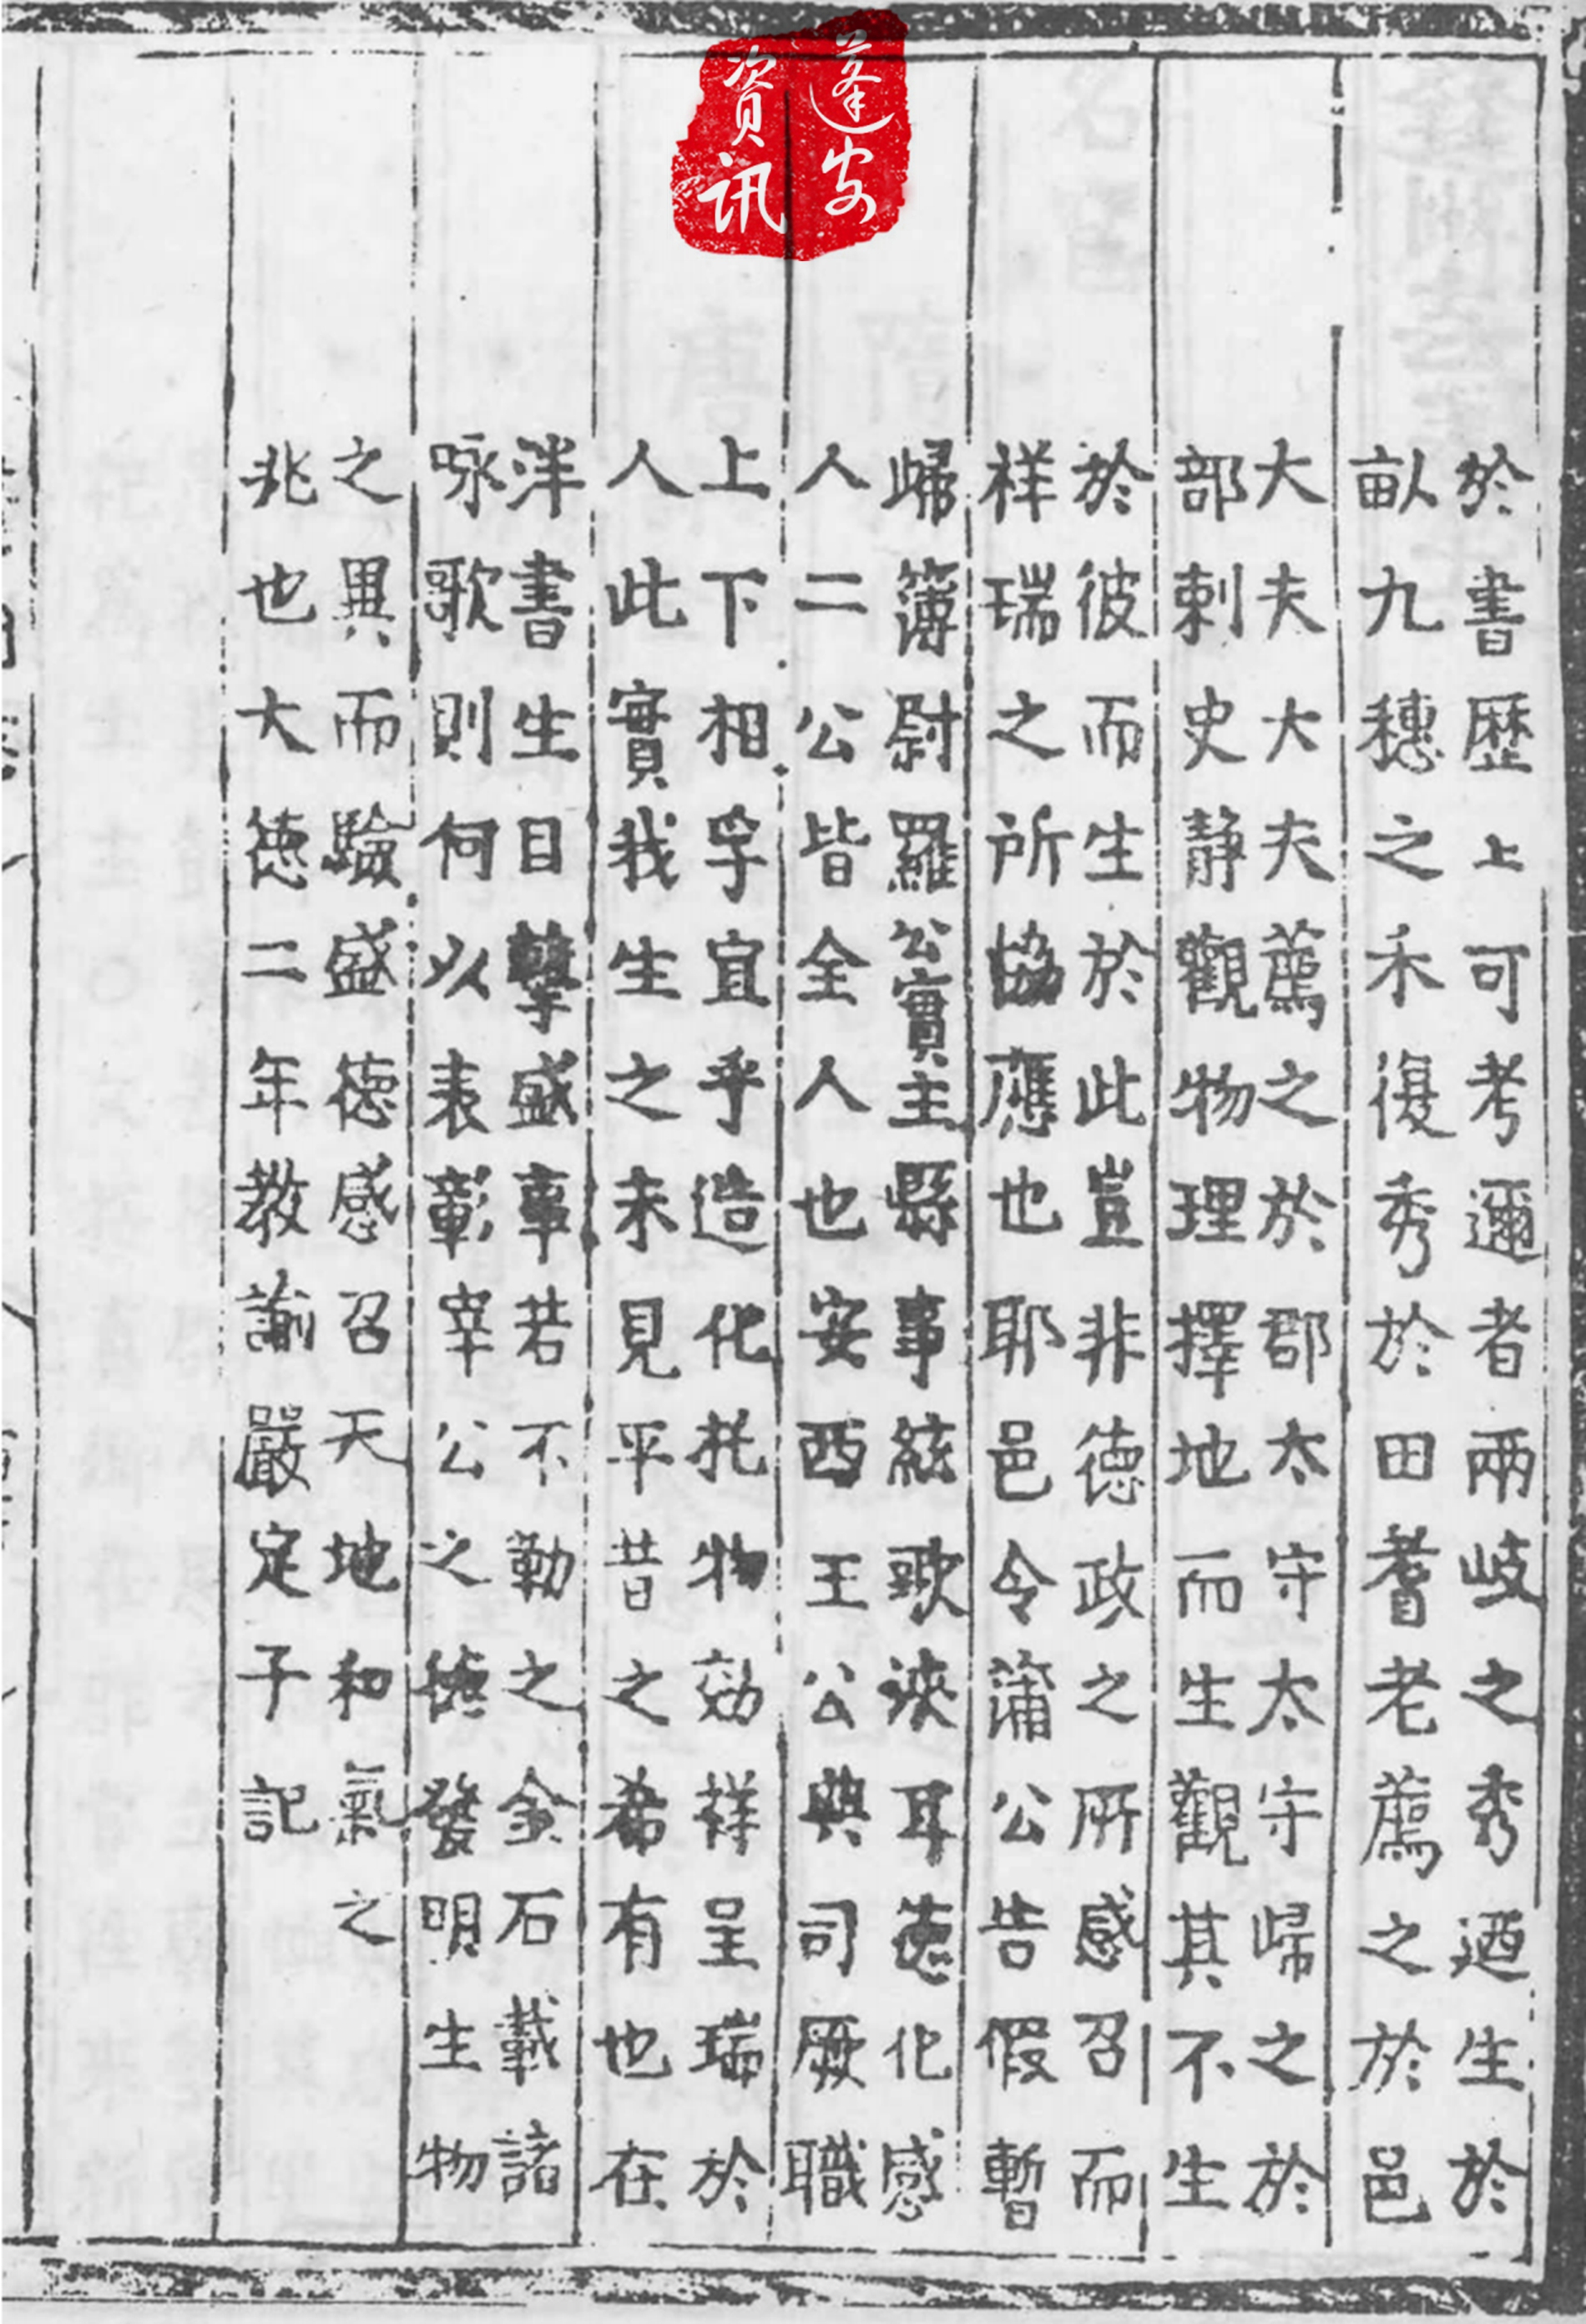 於書歷上可考邇者兩岐之秀迺生於
畝九穗之禾復秀於田耆老薦之於邑
大夫大夫薦之於郡太守太守歸之於
部剌史靜觀物理擇地而生觀其不生
於彼而生於此豈非德政之所感召而
祥瑞之所協應也耶邑令蒲公告假暫
歸簿尉羅公實主縣事絃歌浹耳德化感
人二公皆全人也安西王公典司厥職
上下相孚宜乎造化托物効祥呈瑞於
人此實我生之未見平昔之希有也在
泮書生目擊盛事若不勒之金石載諸
咏歌則何以表彰宰公之德發明生物
之異而驗盛德感召天地和氣之
兆也大德二年教諭嚴定子記
蓬安
资讯